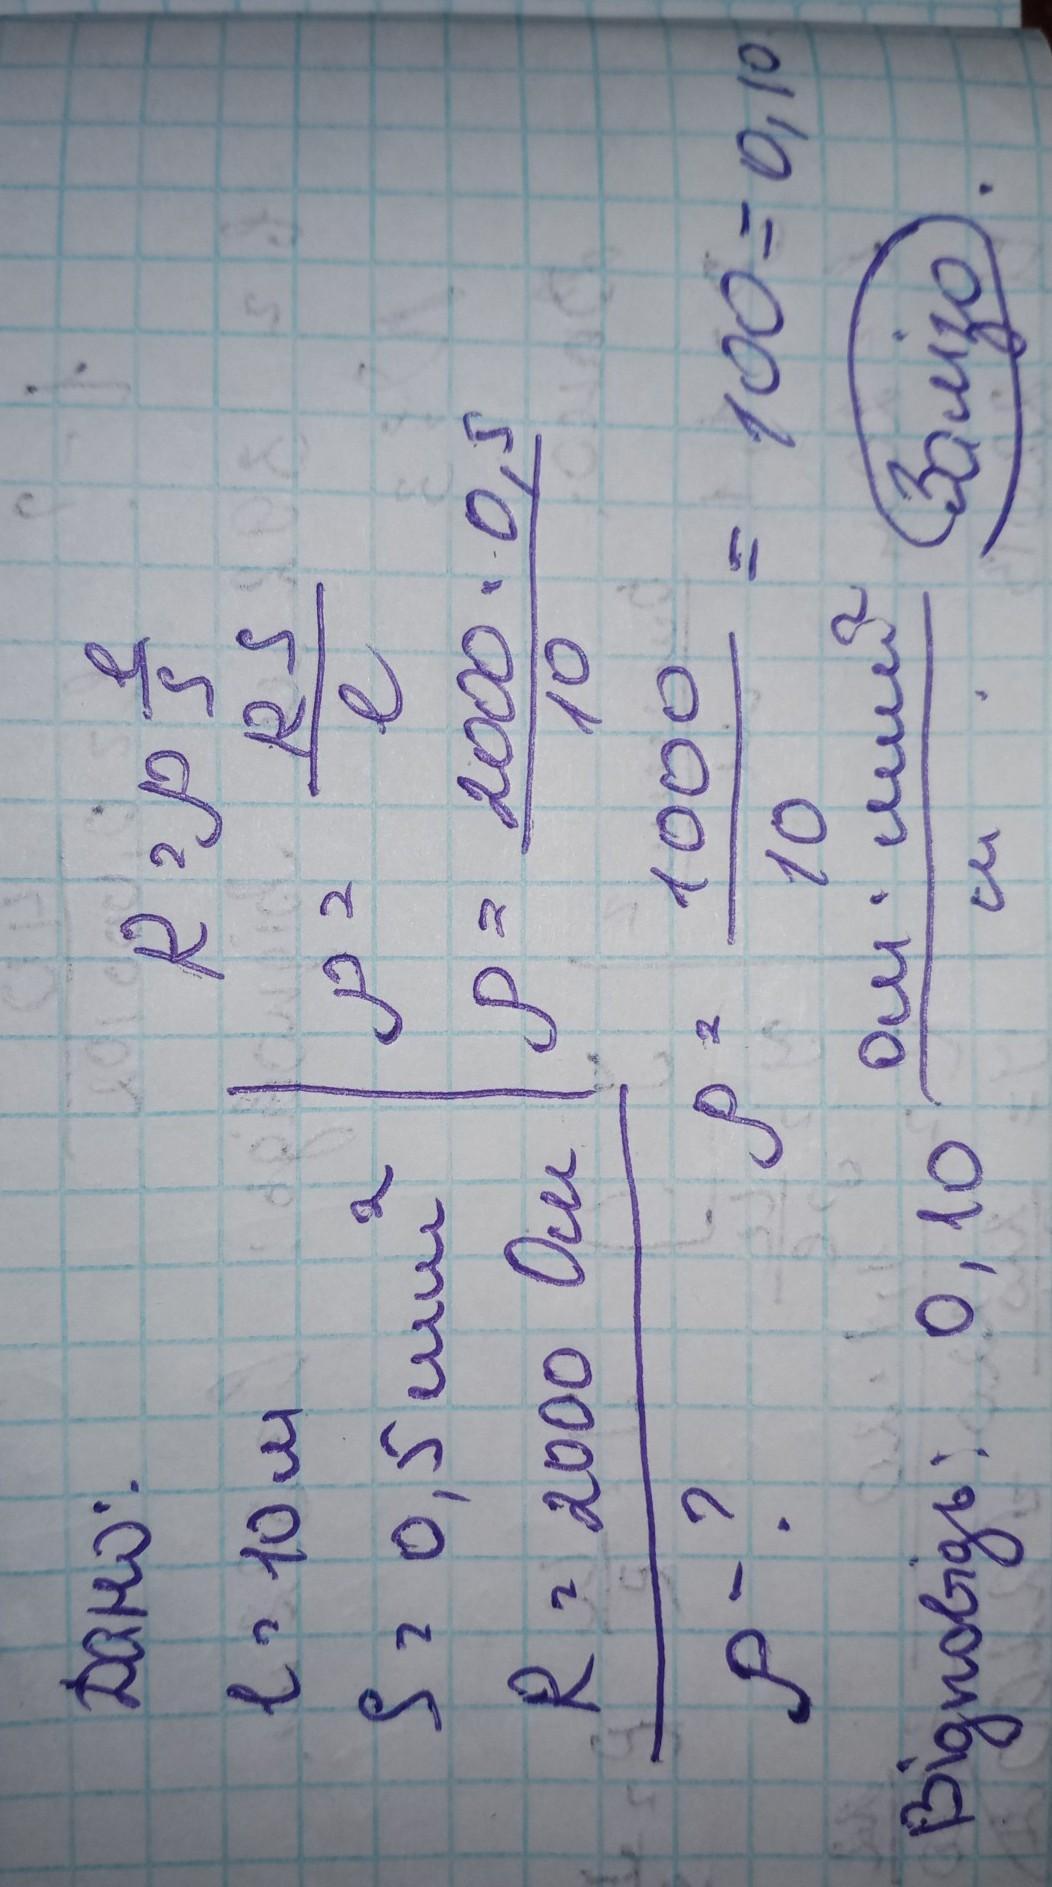 Дано:
l = 10 м
S = 0,5 мм²
R = 2000 Ом
ρ - ?
R = ρ l/S
ρ = RS/l
ρ = 2000 · 0,5/10
ρ = 1000/10 = 100 = 0,10
Відповідь: 0,10 ом · мм²/м. Залізо.